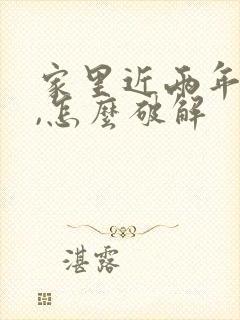 家里近两年
,怎麼破解
湛露